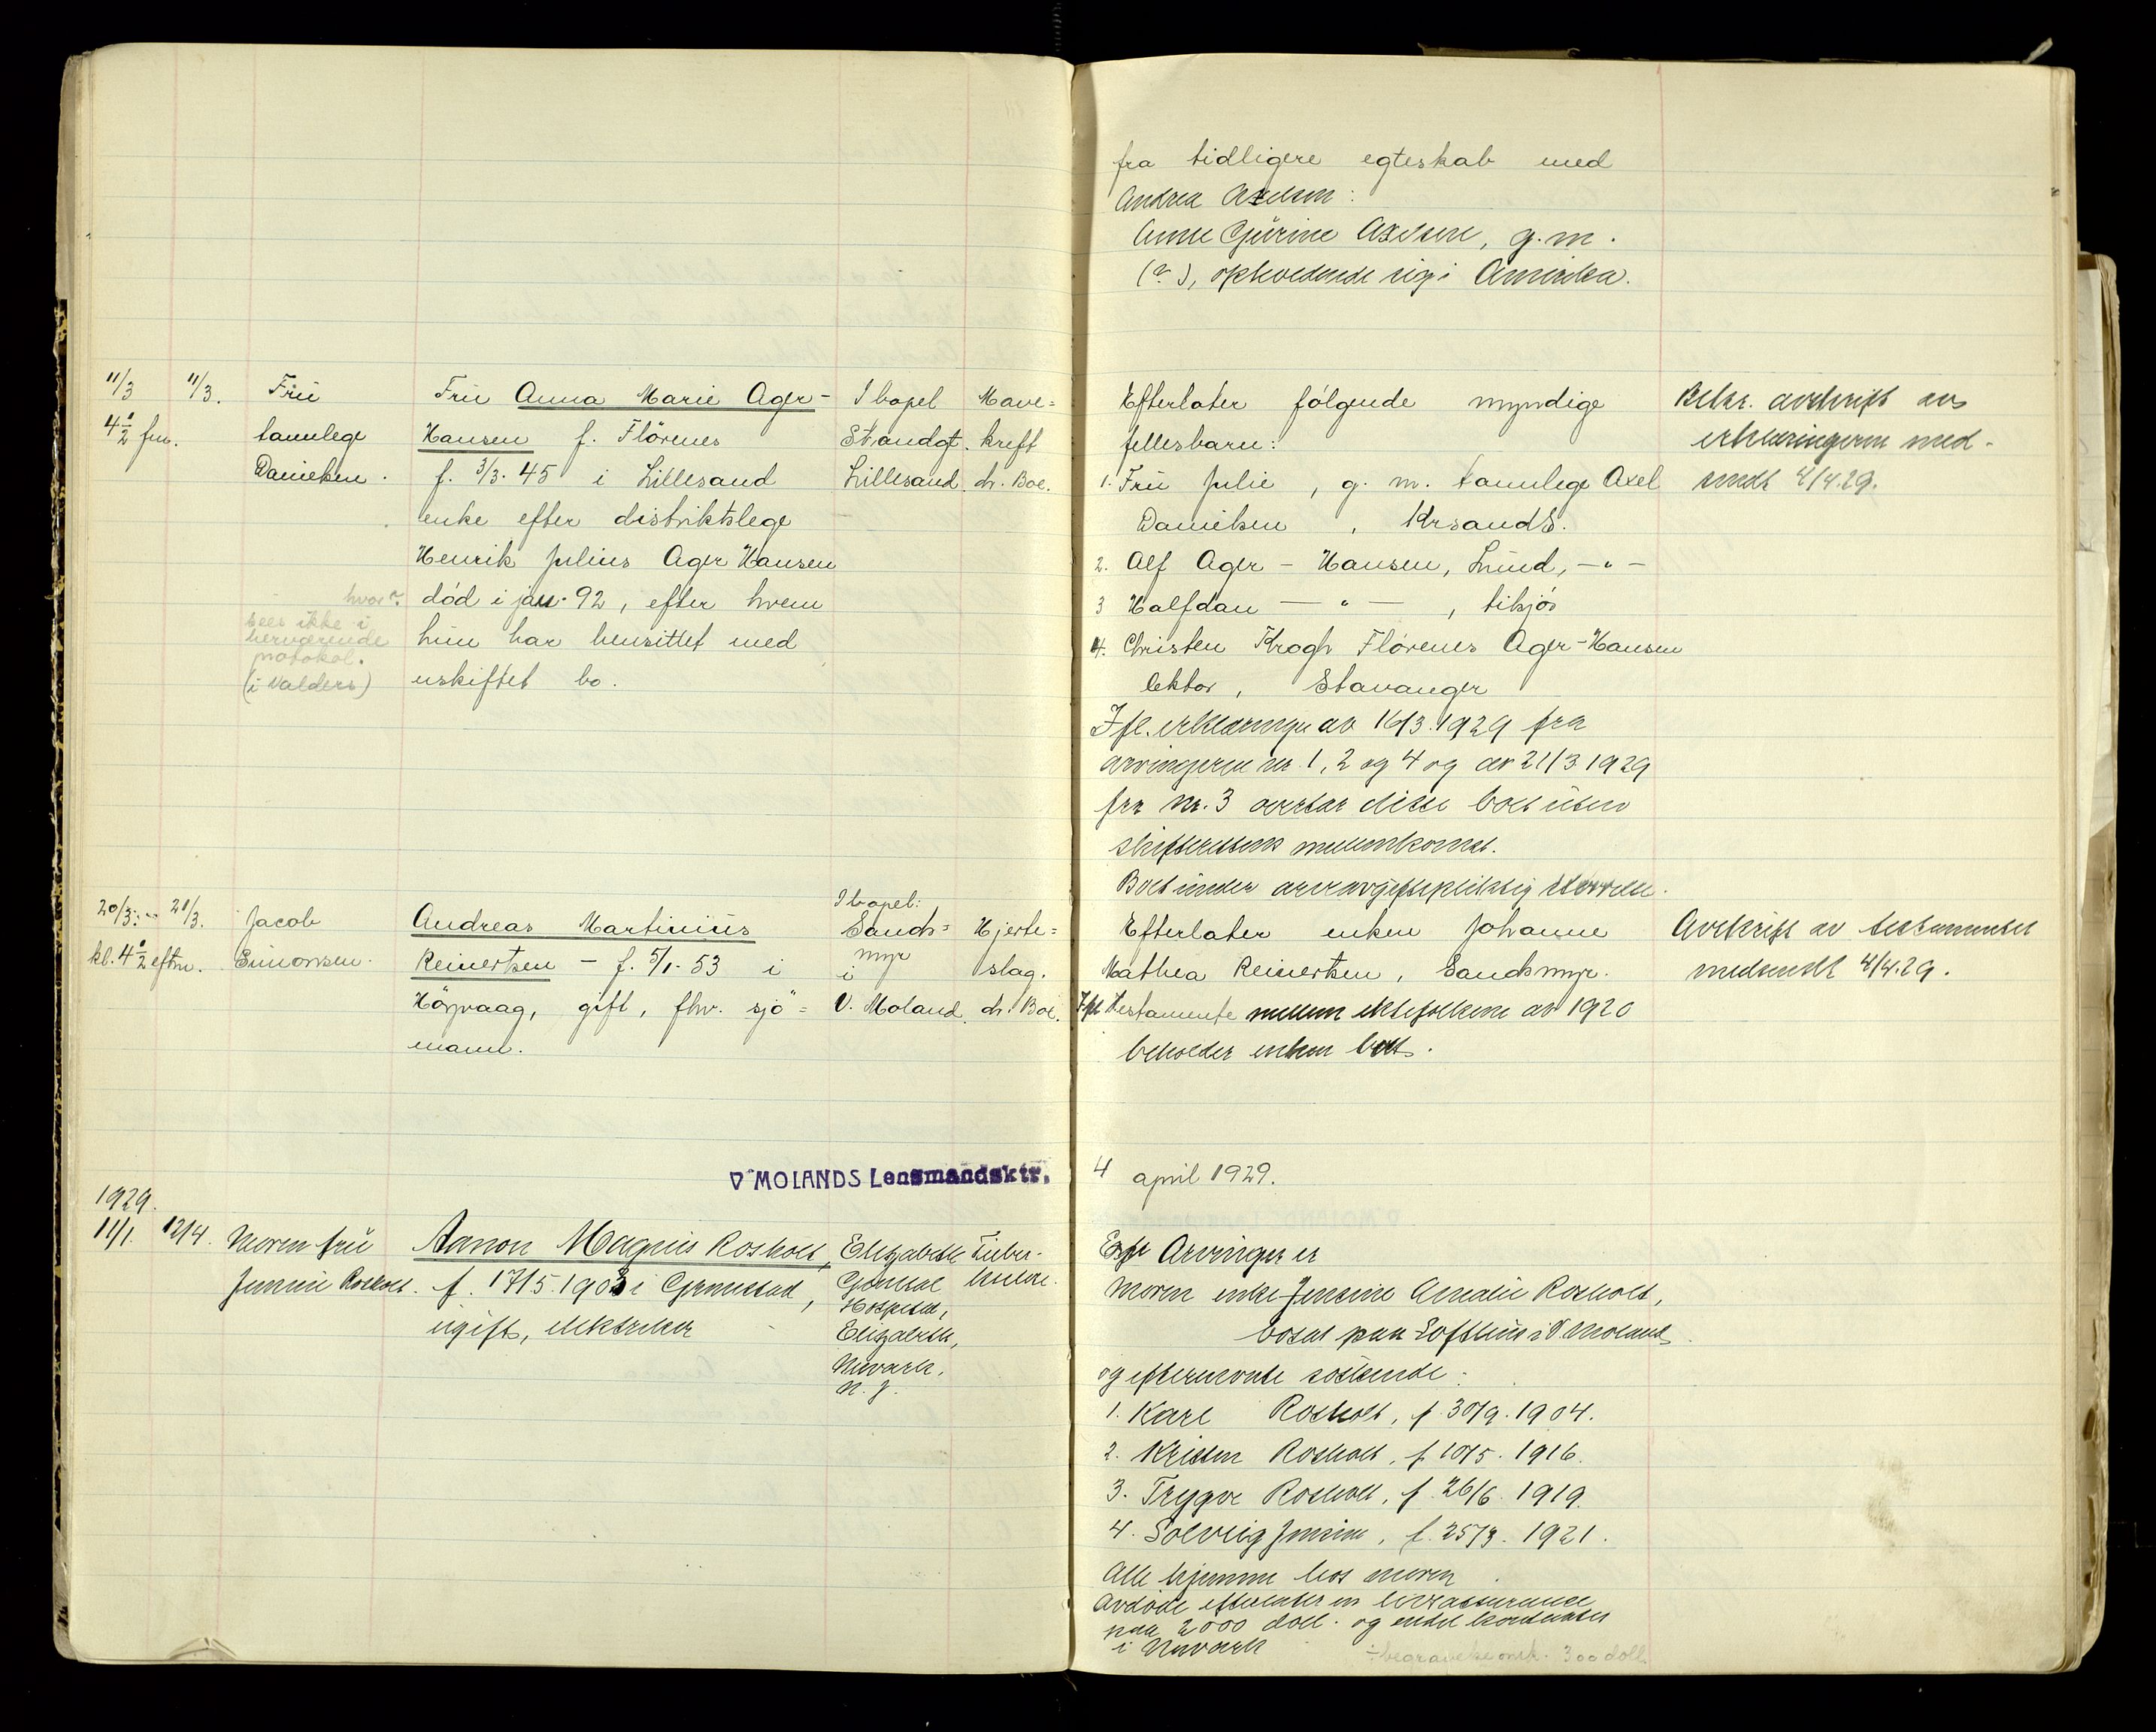 fra tidligere egteskab med
Andrea Axelsen:
Anne Gurine Axelsen, g. m.
(?), opholdende sig i Amerika.
11/3 11/3. Fru Fru Anna Marie Ager- I bopel Mave=
4 1/2 fm. tannlege Hansen f. Flörenes Strandgt. kreft
Danielsen. f. 3/3. 45 i Lillesand Lillesand. dr. Boe.
enke efter distriktslege
Henrik Julius Ager Hansen
hvor? død i jan. 92, efter hvem
sees ikke i
herværende hun har hensittet med
protokol.
(i Valders) uskiftet bo.
Efterlater følgende myndige Bekr. avskrift av
fellesbarn: erklæringerne med-
1. Fru Julie, g. m. tannlege Axel sendt 4/4.29.
Danielsen, Krsand S.
2. Alf Ager - Hansen, Lund, — " —
3 Halfdan — " —, tilsjøs
4. Christen Krogh Flørenes Ager-Hansen
lektor, Stavanger
Ifl. erklæringer av 16/3.1929 fra
arvingerne nr. 1, 2 og 4 og av 21/3 1929
fra nr. 3 overtar disse boet uten
skifterettens mellemkomst.
Boet under arveavgiftspliktig størrelse.
20/3. 21/3. Jacob Andreas Martinius I bopel: Sands= Hjerte=
kl. 4 1/2 eftm. Simonsen. Reinertsen - f. 5/1. 53 i myr i slag.
Høvaag, gift, fhv. sjö= V. Moland. dr. Boe.
mann.
Efterlater enken Johanne Avskrift av testamentet
Mathea Reinertsen, Sandsmyr. medsendt 4/4.29.
Ifl testamente mellem ektefolkene av 1920
beholder enken boet.
V. MOLANDS Lensmandsktr. 4 april 1929.
1929.
11/1. 12/4. Moren fru Aanon Magnus Rosholt, Elizabeth Tuber-
Jensine Rosholt. f. 17/5.1903 i Grimstad, General kulose.
ugift, elektriker Hospital,
Elizabeth,
Newark,
N. J.
Arvinger er
Moren enke Jensine Amalie Rosholt,
bosat paa Lofthus i V Moland
og efternevnte søskende:
1. Karl Rosholt, f. 30/9. 1904.
2. Kristen Rosholt, f 10/5. 1916.
3. Trygve Rosholt, f. 26/6. 1919.
4. Solveig Jensine, f. 25/3. 1921.
Alle hjemme hos moren
Avdøde efterlater en livsassurance
paa 2000 doll. og endel kontanter
i Newark ÷ begravelse omk. 300 doll.